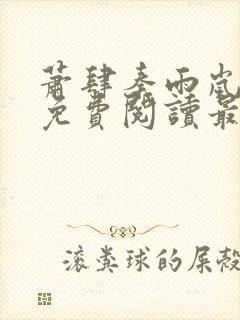 蕭肆秦雨嵐
免費閱讀最
滾糞球的屎殼